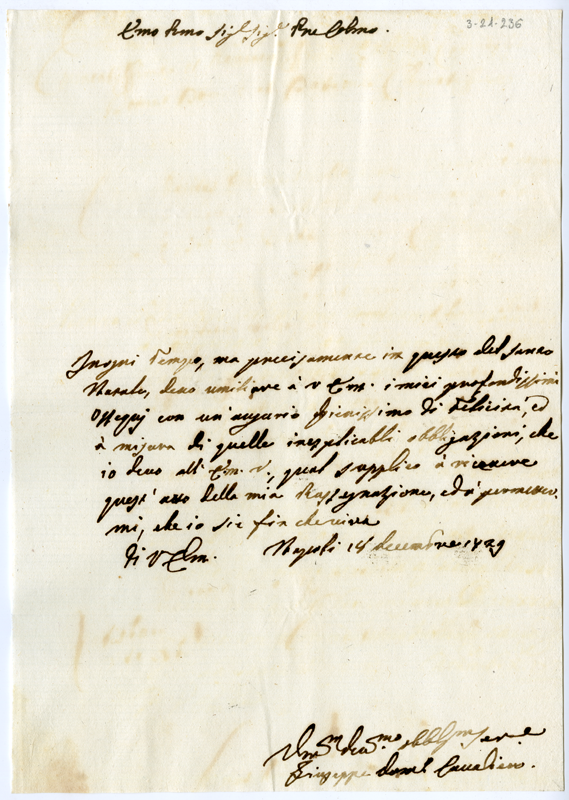 Emo Rmo Sigr Sigr Pne Colmo.
3-21-236
In ogni tempo, ma precisamente in questo del santo
Natale, devo umiliare à v Em. i miei profondissimi
Ossequj con un'augurio pienissimo di Felicità, ed
à misura di quelle inesplicabili obbligazioni, che
io devo all' Em. v., qual supplico à ricevere
quest' atto della mia Rassegnazione, ed à permetter
mi, che io sia fin che viva
di V Em. Napoli 14 decembre
Umo devmo obblmo serve
Giuseppe Domo Cavaliero.